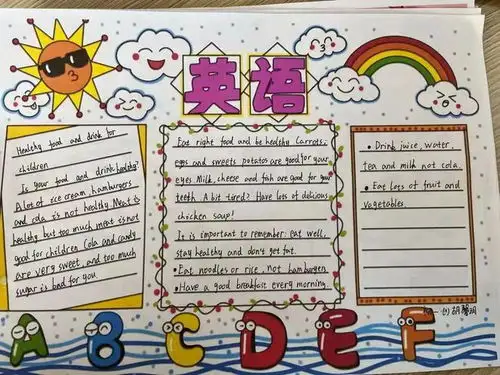 英语
Healthy food and drink for
children
Is your food and drink healthy?
A lot of ice cream, hamburgers
and cola is not healthy. Meat is
healthy but too much meat is not
good for children. Cola and candy
are very sweet, and too much
sugar is bad for you.
Eat right food and be healthy. Carrots,
eggs and sweets potatos are good for your
eyes. Milk, cheese and fish are good for your
teeth. A bit tired? Have lots of delicious
chicken soup!
It is important to remember: eat well,
stay healthy and don't get fat.
• Eat noodles or rice, not hamburgen
• Have a good breakfast every morning.
• Drink juice, water,
tea and milk not cola.
• Eat lots of fruit and
vegetables.
A B C D E F